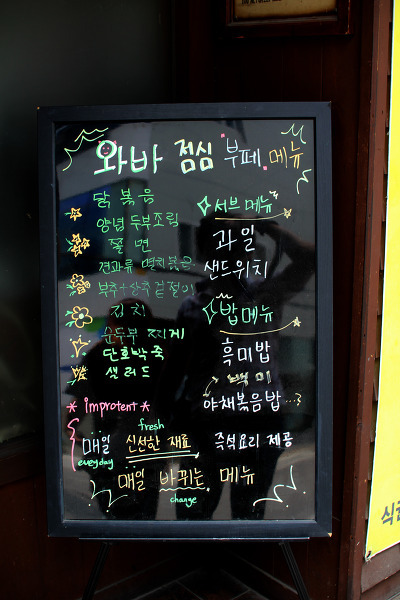 와바 점심 부페 메뉴
닭볶음
양념두부조림
쫄면
견과류 멸치볶음
부추+상추 겉절이
김치
순두부 찌게
단호박죽
샐러드
서브메뉴
과일
샌드위치
밥메뉴
흑미밥
백미
야채볶음밥...?
* improtent *
fresh
매일 신선한 재료 즉석요리 제품
everyday
매일 바뀌는 메뉴
change